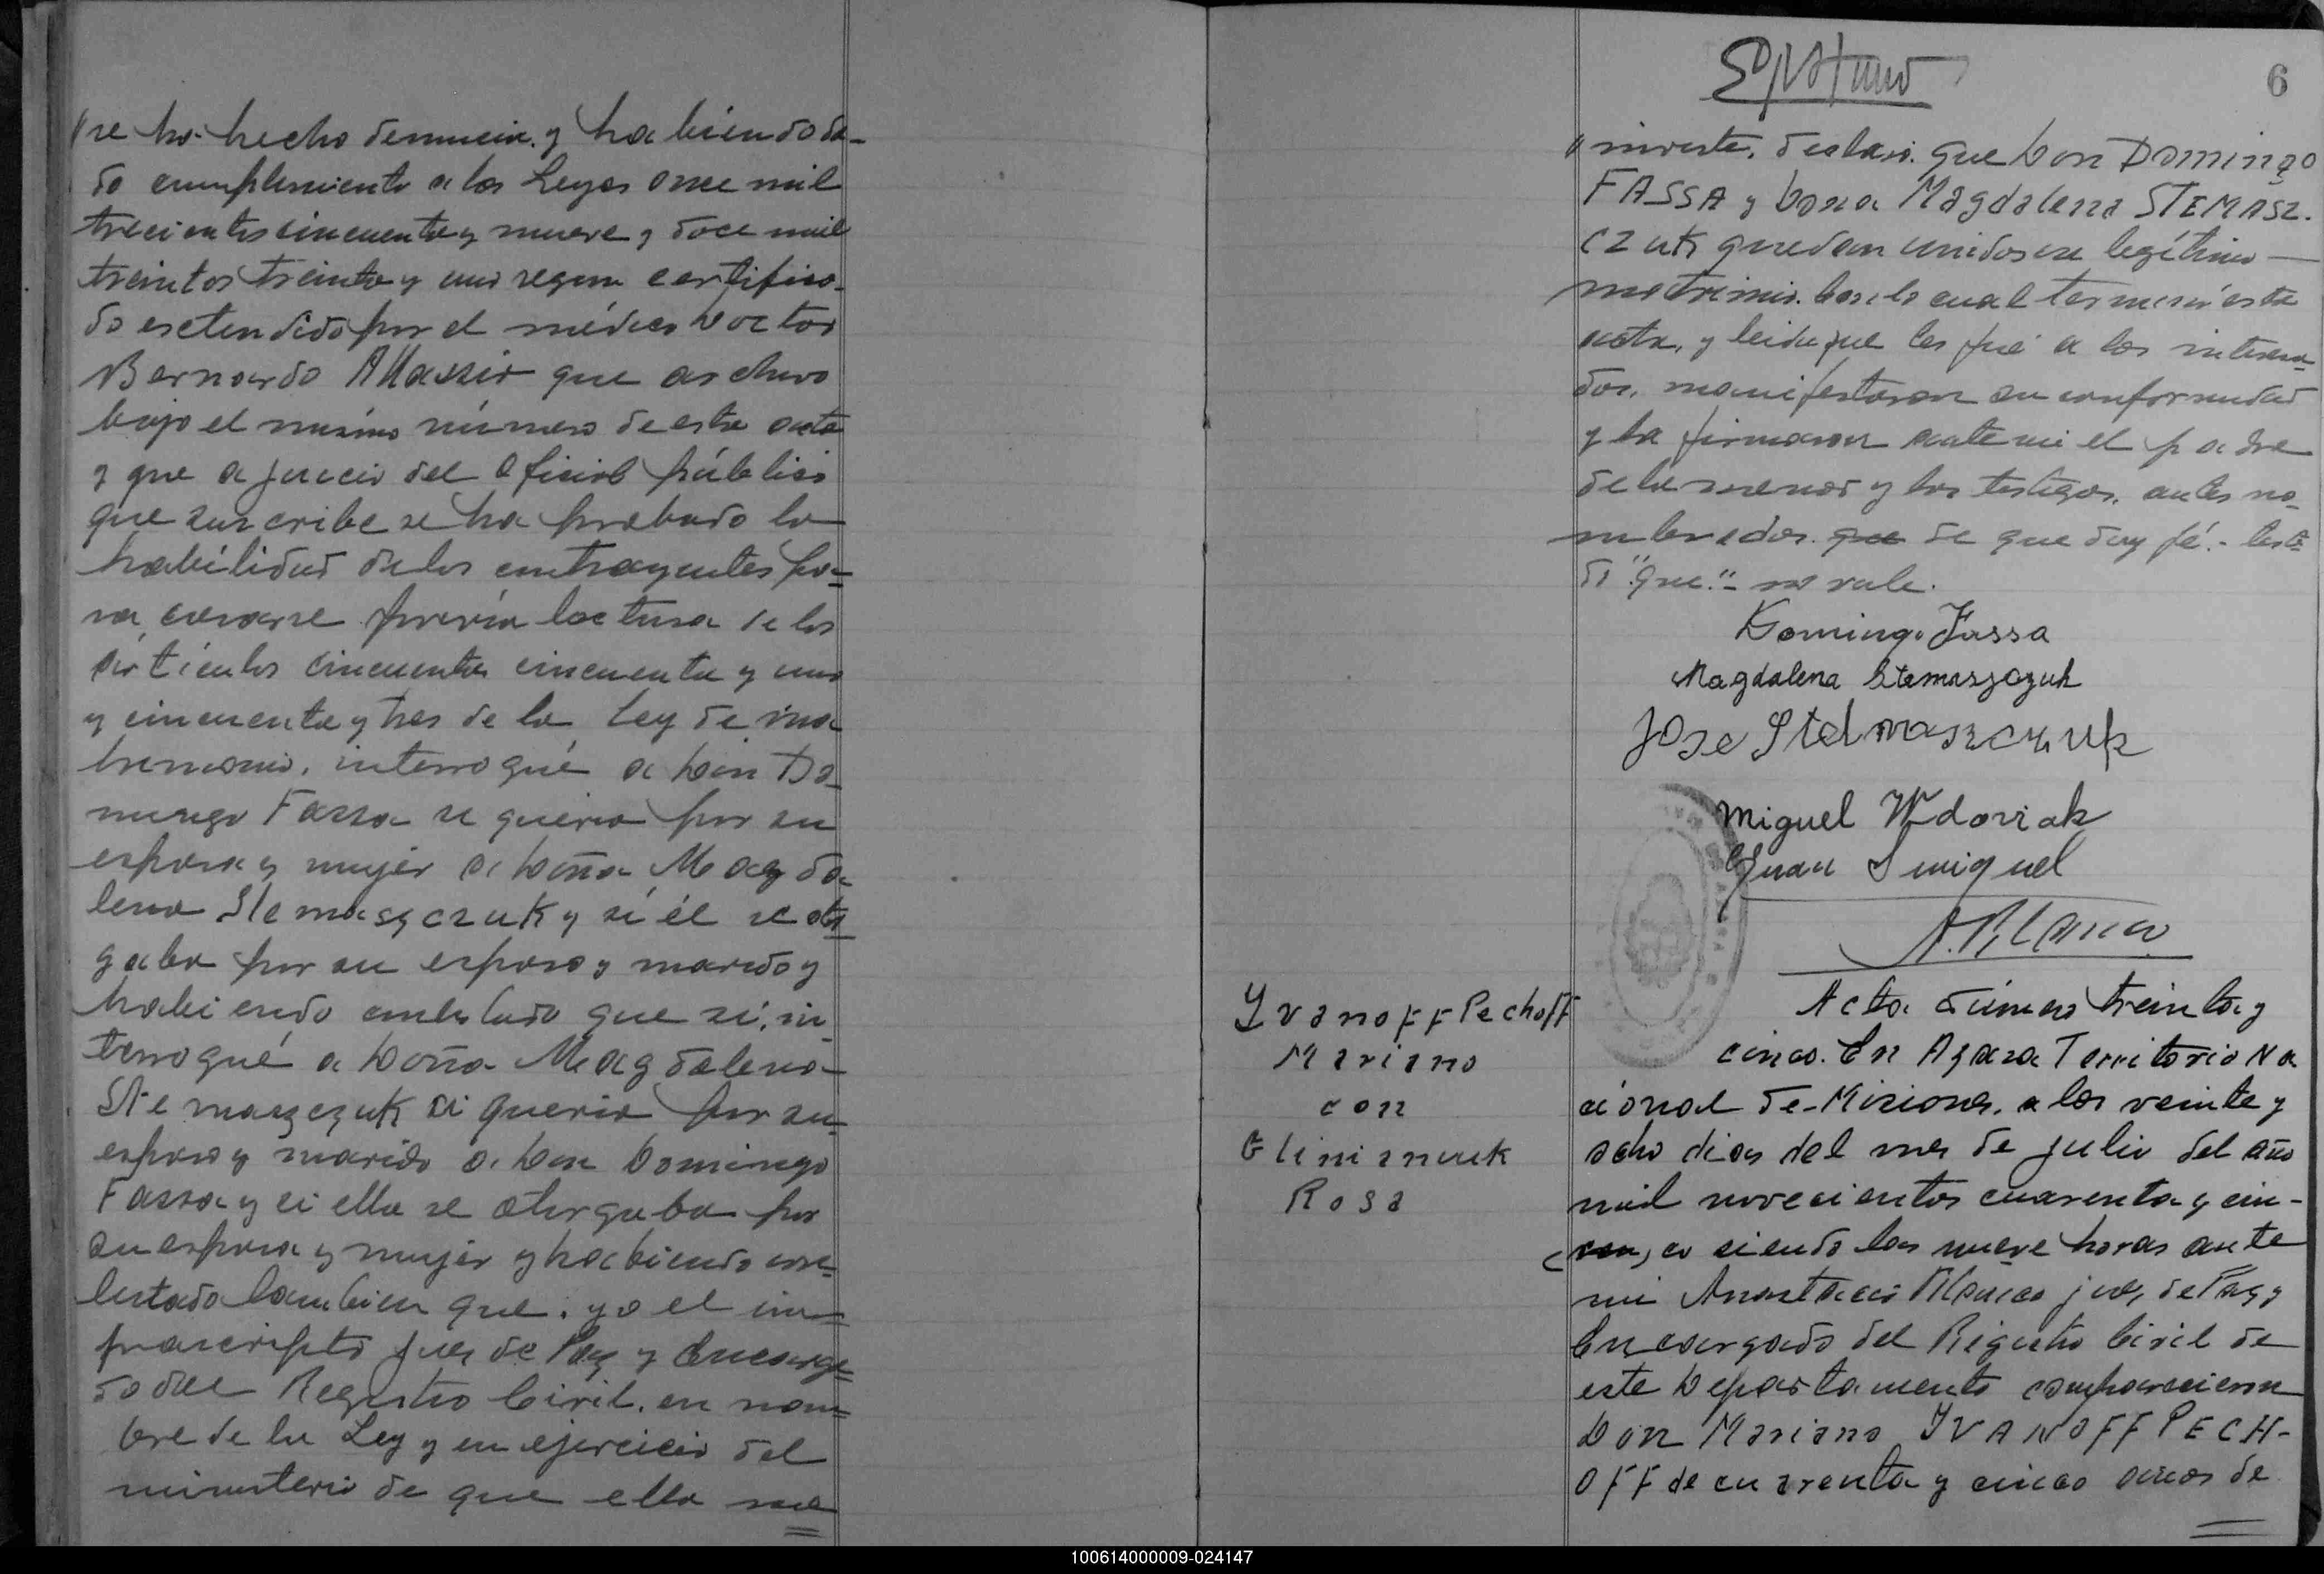 se ha hecho denuncia. y habiendo da-
do cumplimiento a las Leyes once mil
trecientos cincuenta y nueve y doce mil
treintos treinta y uno segun certifica-
do esctendido por el médico Doctor
Bernardo que archivo
bajo el mismo número de esta acta
y que a juicio del Oficial público
que suscribe se ha probado la
habilidad de los contrayentes pa=
ra casarse previa lectura de los
artículos cincuenta cincuenta y uno
y cincuenta y tres de la Ley de ma
trimonio, interrogué a Don Do-
mingo Fassa si queria por su
esposa y mujer a Doña Magda-
lena Stemaszczuk y si él se otor
gaba por su esposo y marido y
habiendo contestado que si, in
terrogué a Doña Magdalena
Stemaszczuk si queria por su
esposo y marido a Don Domingo
Fassa y si ella se otorgaba por
su esposa y mujer y habiendo con=
testado tambien que. yo el in=
frascripto Juez de Paz y Encarga=
do del Registro Civil, en nom=
bre de la Ley y en ejercicio del
ministerio de que ella me
6
inviste, declaro. que Don Domingo
FASSA y Dona Magdalena STEMASZ.
CZUK quedan unidos en legítimo —
matrimio. Con lo cual terminó esta
acta, y leida que les fué a los interesa-
dos, manifestaron su conformidad
y la firmaron ante mi el padre
de la menor y los testigos. antes no-
mbrados. que de que doy fé.- testa
do "que."- no vale.
Domingo Fassa
Magdalena Stemaszczuk
Jose Stelmaszczuk
Miguel Wdoviak
Juan Smiguel
A. Blanco
Yvanoff Pechoff
Mariano
con
Glinianuk
Rosa
Acta número treinta y
cinco. En Azara Territorio Na
cional de Misiones, a los veinte y
ocho dias del mes de julio del año
mil novecientos cuarenta y cin-
co siendo las nueve horas ante
mi Anastacio Blanco juez de Paz y
Encargado del Registro Civil de
este Departamento comparecieron
Don Mariano YVANOFF PECH-
OFF de cuarenta y cinco años de
100614000009-024147